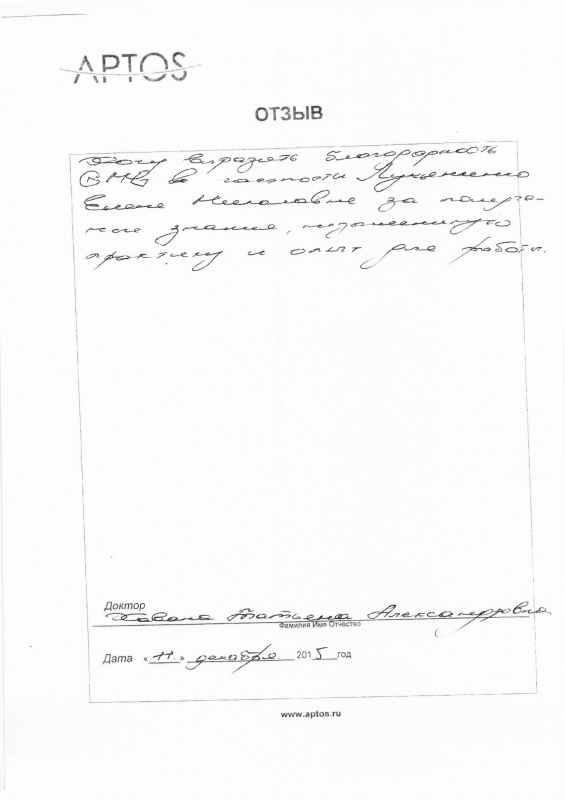 APTOS
ОТЗЫВ
Хочу выразить благодарность
в частности Лукьяненко
Елене Николаевне за получен-
ные знания, незаменимую
практику и опыт для работы.
Доктор
Татьяна Александровна
Фамилия Имя Отчество
Дата «11» декабря 2015 год
www.aptos.ru